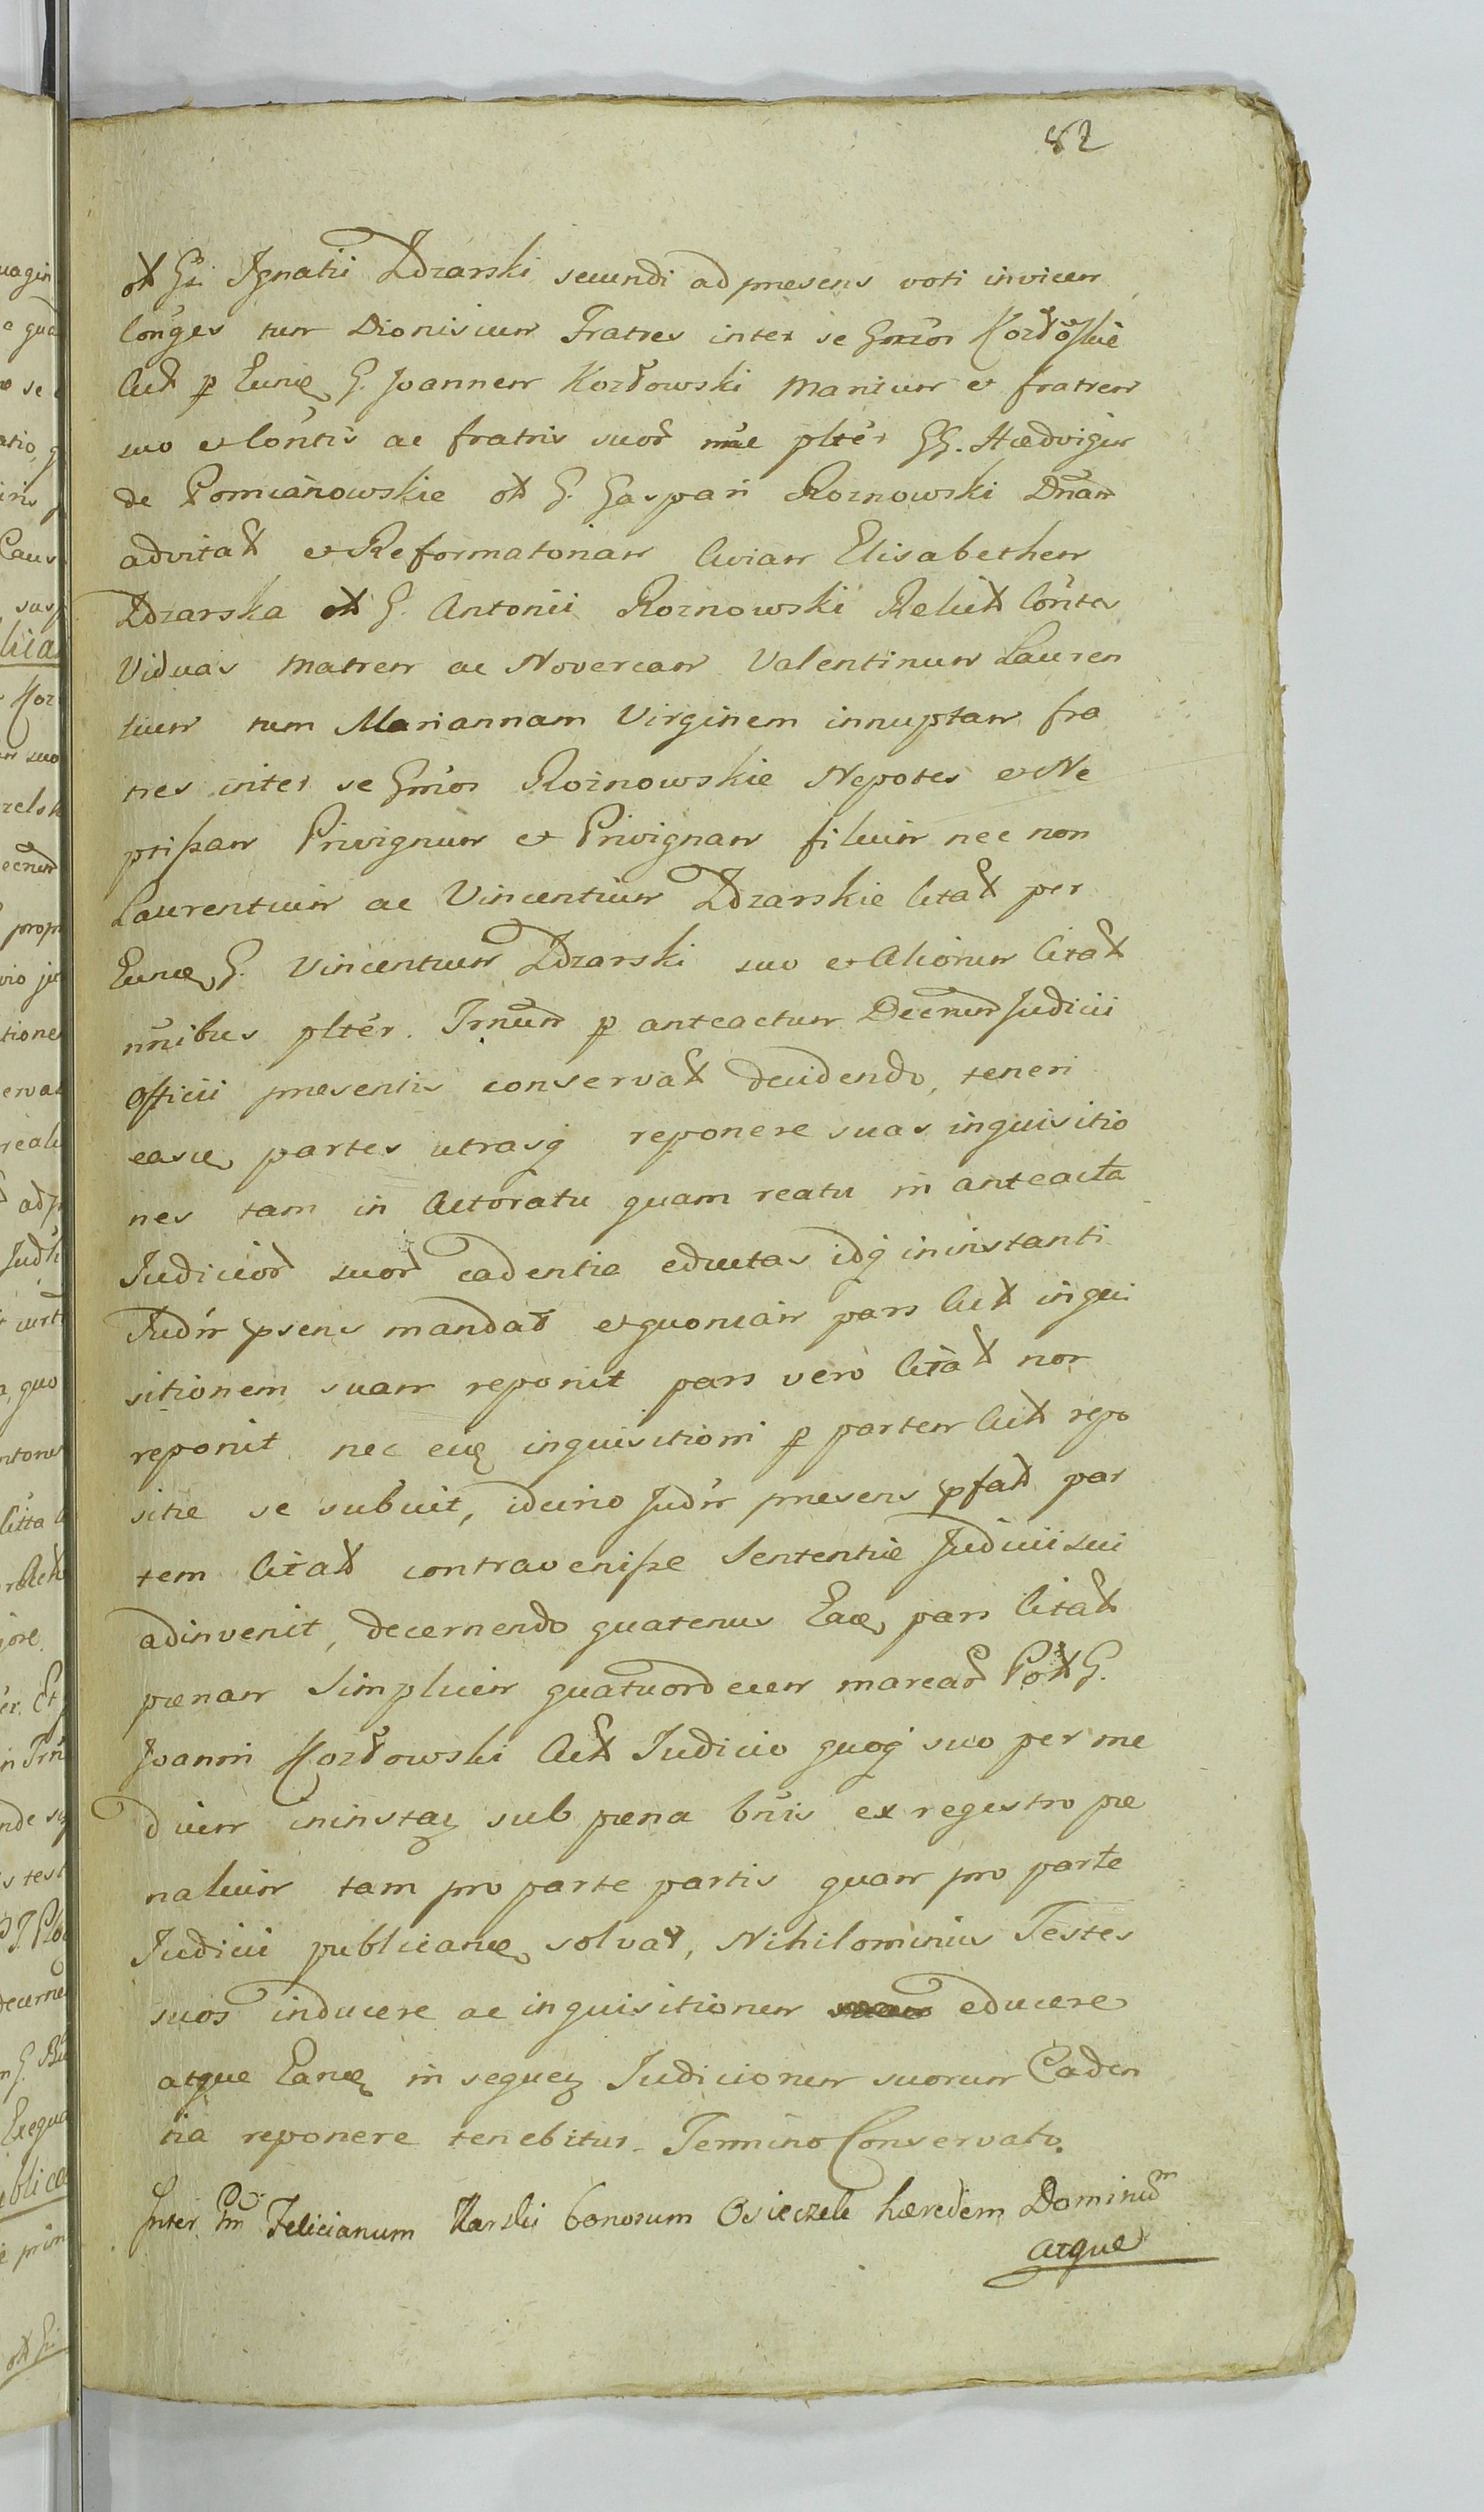 82
olt Gi. Ignatii Zdzarski secundi ad presens voti invicem
Cōnges tum Dionisium Fratres inter se Gmōr Kozłoskie
Act p Eunq G. Joannem Kozłowski Maritum et fratrem
suo et Cōntis ac fratris suor nne pltēr GG. Hædvigim
de Pomianowskie olt G. Gaspari Roznowski Dnam
advital et Reformatoriam Aviam Elisabethem
Zdzarska olt G. Antonii Roznowski Relict Cōntes
Viduas Matrem ac Novercam Valentinum Lauren
tium tum Mariannam Virginem innuptam fra
tres inter se Gmōr Roznowskie Nepotes et Ne
ptissam Privignum et Privignam filium nec non
Laurentium ac Vincentium Zdzarskie Citat per
Eunq G. Vincentium Zdzarski suo et Aliorum Citat
nnibus pltēr. Trnum p anteactum Decrum Judicii
Officii presentis conservat decidendo, teneri
easq partes utrasq reponere suas inquisitio
nes tam in Actoratu quam reatu in anteacta
Judicior suor cadentia eductas idq in instanti
Judm psens mandat et quoniam pars Act inqui
sitionem suam reponit pars vero Citat non
reponit nec euq inquisitioni p partem Act repo
sitæ se subiit, idcirco Judm presens pfat par
tem Citat contravenisse Sententiæ Judicii sui
adinvenit, decernendo quatenus Eaq pars Citat
pœnam Simplicem quatuordecim marcar Pol G.
Joanni Kozłowski Act Judicio quoq suo per me
dium in instaq sub pœna bnis ex regestro pœ
nalium tam pro parte partis quam pro parte
Judicii publicanq solvat, Nihilominus Testes
suos inducere ac inquisitionem educere
atque Eanq in sequeq Judiciorum suorum Caden
tia reponere tenebitur. Termino Conservato.
Inter Felicianum Karski bonorum Osieczek hæredem Dominum
atque